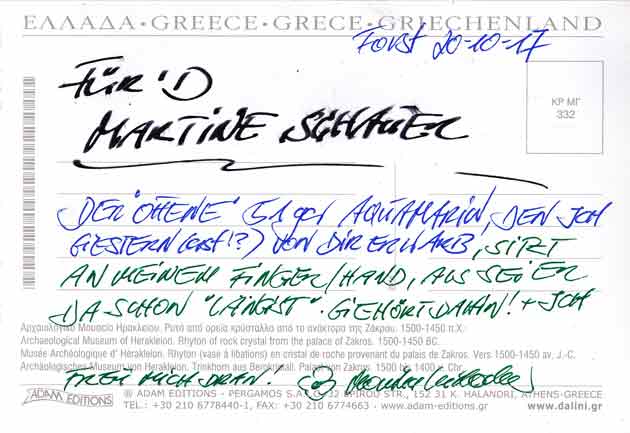 ΕΛΛΑΔΑ · GREECE · GRECE · GRIECHENLAND
Forst 20-10-17
FÜR 'D
MARTINE SCHAUER
ΚΡ ΜΓ
332
DER "OFFENE" 51 AQUAMARIN, DEN ICH
GESTERN (erst!?) VON DIR ERWARB, SITZT
AN MEINEM FINGER/HAND, ALS SEI ER
DA SCHON "LÄNGST". GEHÖRT DAHIN! + ICH
Αρχαιολογικό Μουσείο Ηρακλείου. Ρυτό από ορεία κρύσταλλο από το ανάκτορο της Ζάκρου. 1500-1450 π.Χ.
Archaeological Museum of Herakleion. Rhyton of rock crystal from the palace of Zakros. 1500-1450 BC.
Musée Archéologique d' Herakleion. Rhyton (vase à libations) en cristal de roche provenant du palais de Zakros. Vers. 1500-1450 av. J.-C.
Archäologisches Museum von Herakleion. Trinkhorn aus Bergkristall. Palast von Zakros. 1500 bis 1400 v. Chr.
FREU MICH DRAN!
ADAM EDITIONS
® ADAM EDITIONS - PERGAMOS S.A. SPIROU STR., 152 31 K. HALANDRI, ATHENS-GREECE
TEL.: +30 210 6778440-1, FAX: +30 210 6774663 - www.adam-editions.gr
www.dalini.gr